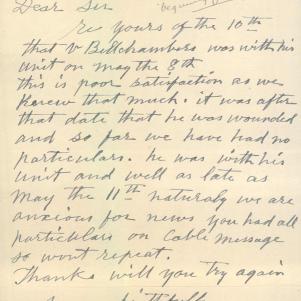 Dear Sir
re yours of the 10th
that v Bellchambers was with his
unit on may the 8th
this is poor satisfaction as we
knew that much. it was after
that date that he was wounded
and so far we have had no
particulars. he was with his
unit and well as late as
May the 11th naturaly we are
anxious for news you had all
particulars on Cable message
so wont repeat.
Thanks will you try again